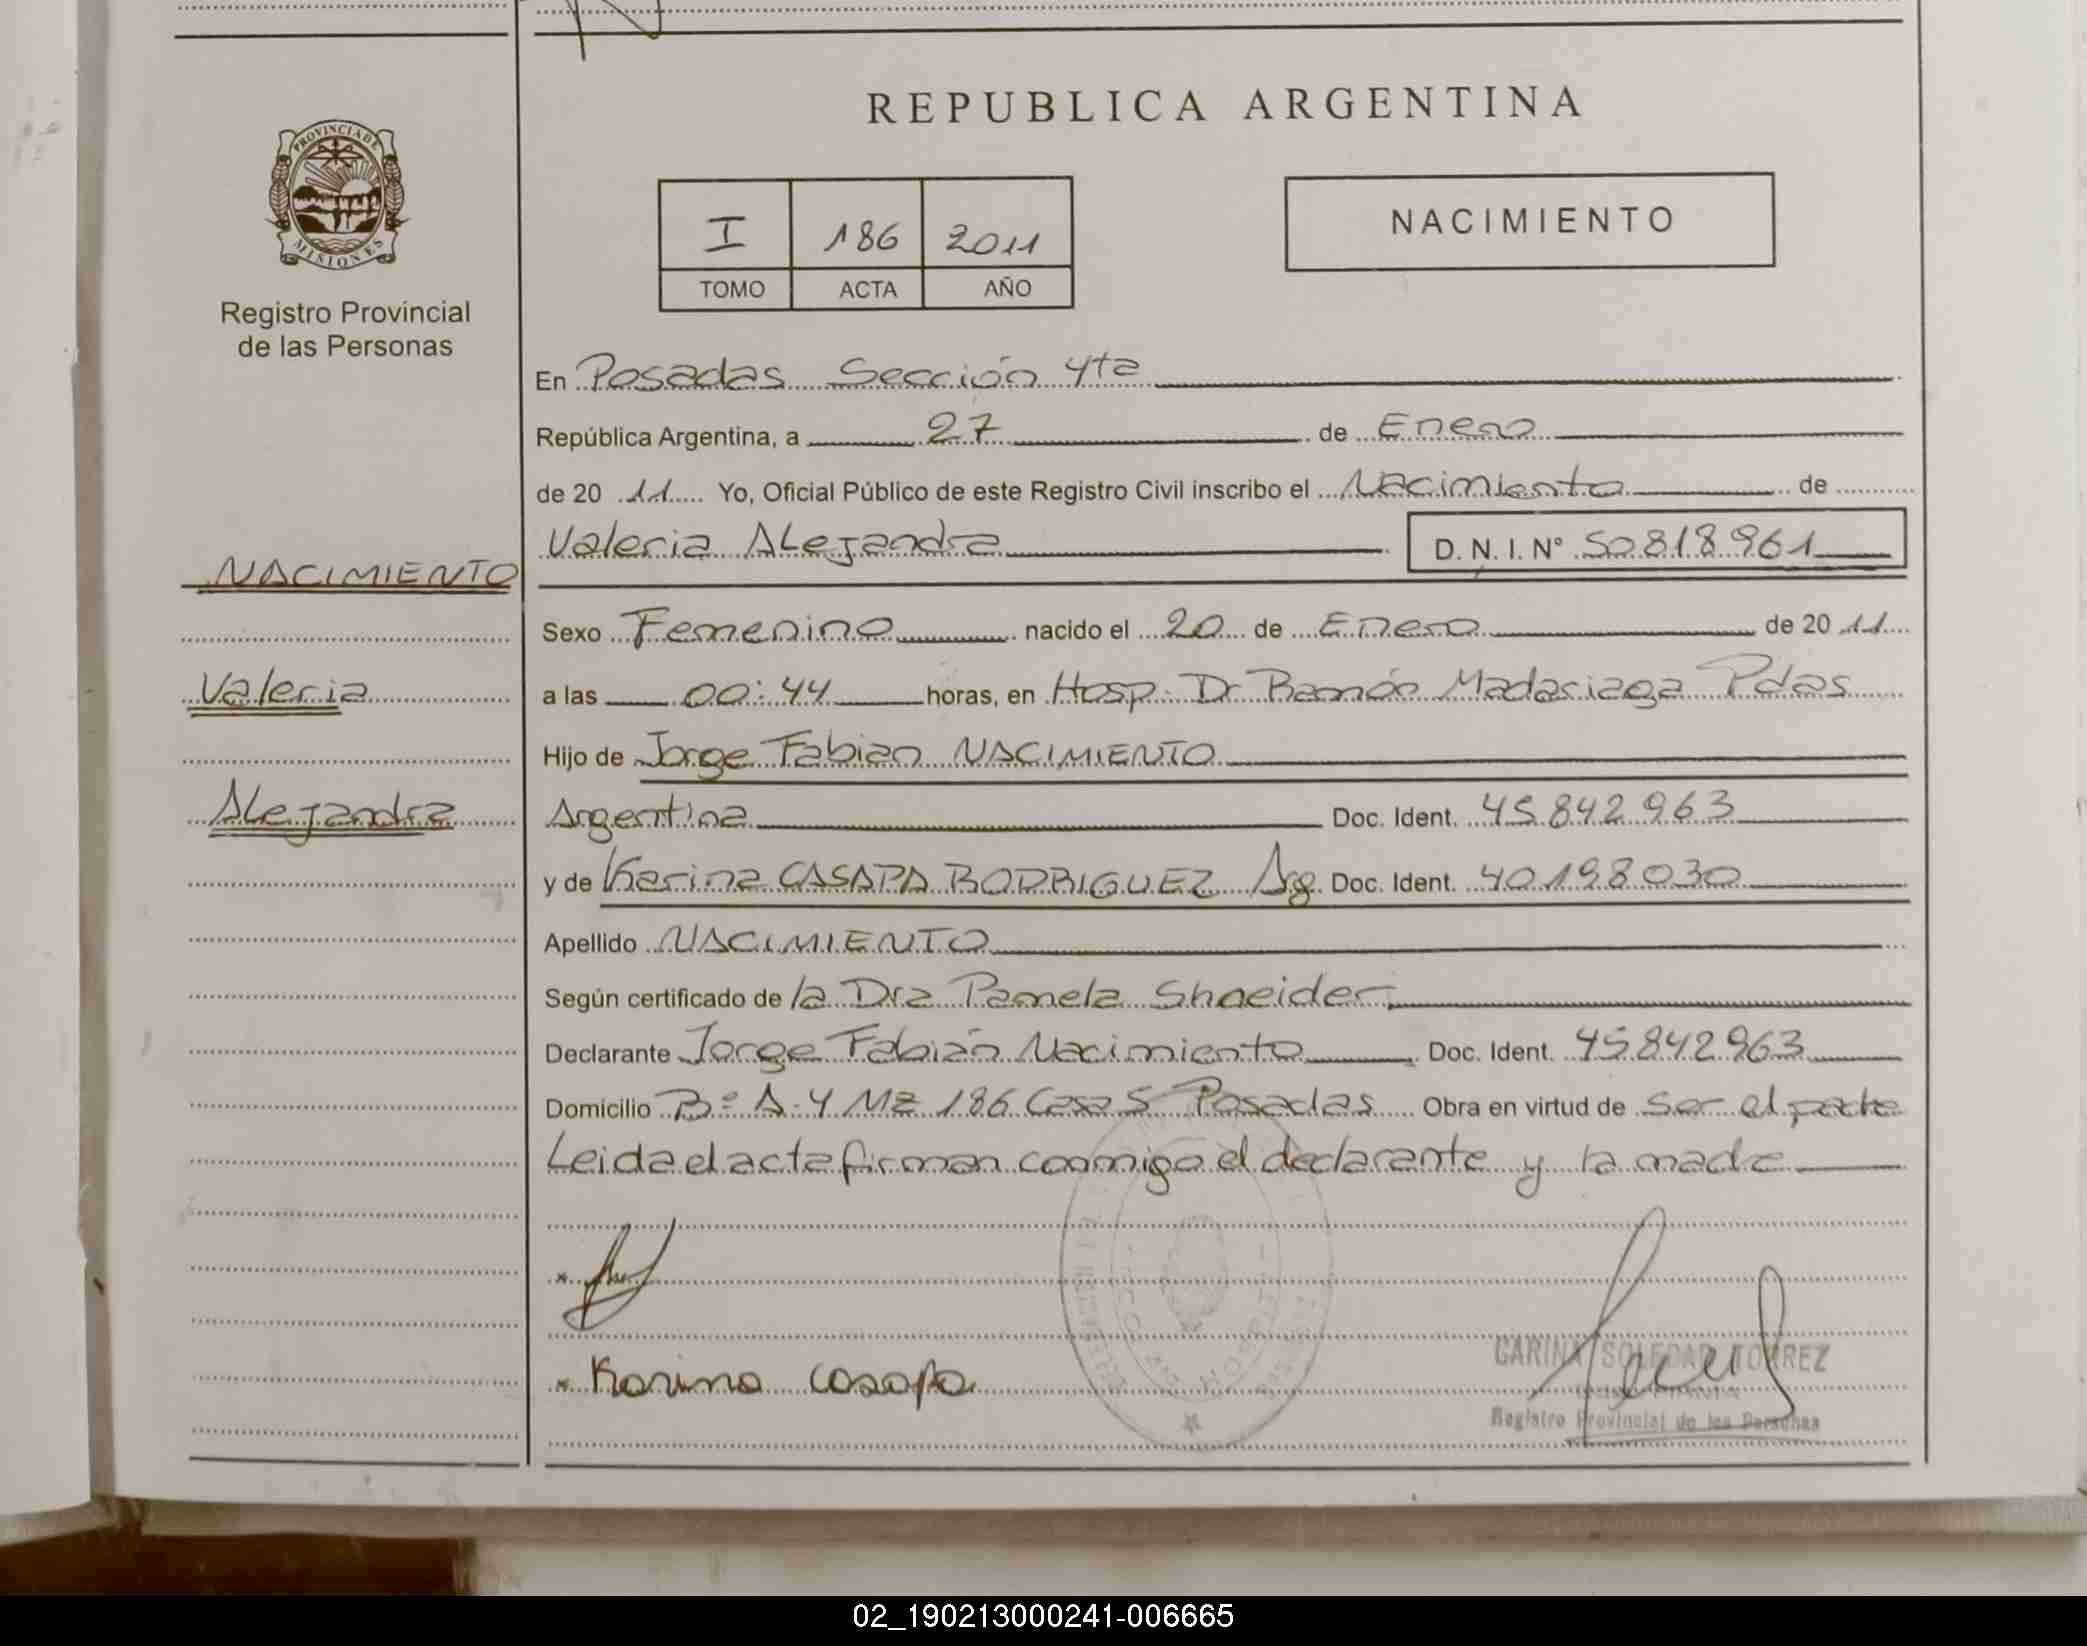 REPUBLICA ARGENTINA
PROVINCIA DE MISIONES
Registro Provincial
de las Personas
I 186 2011
TOMO ACTA AÑO
NACIMIENTO
En Posadas Sección 4ta
República Argentina, a 27 de Enero
de 20 11 Yo, Oficial Público de este Registro Civil inscribo el Nacimiento de
Valeria Alejandra D. N. I. Nº 50818961
NACIMIENTO
Valeria
Alejandra
Sexo Femenino nacido el 20 de Enero de 20 11
a las 00:44 horas, en Hosp. Dr Ramón Madariaga Pdas
Hijo de Jorge Fabian NACIMIENTO
Argentina Doc. Ident. 45842963
y de Karina CASAPA RODRIGUEZ Arg. Doc. Ident. 40198030
Apellido NACIMIENTO
Según certificado de la Dra Pamela Shneider
Declarante Jorge Fabián Nacimiento Doc. Ident. 45842963
Domicilio Bº A-4 Mz 186 Casa 5 Posadas Obra en virtud de ser el padre
Leida el acta firman conmigo el declarante y la madre
Karina Casapa
CARINA SOLEDAD TORREZ
Registro Provincial de las Personas
02_190213000241-006665